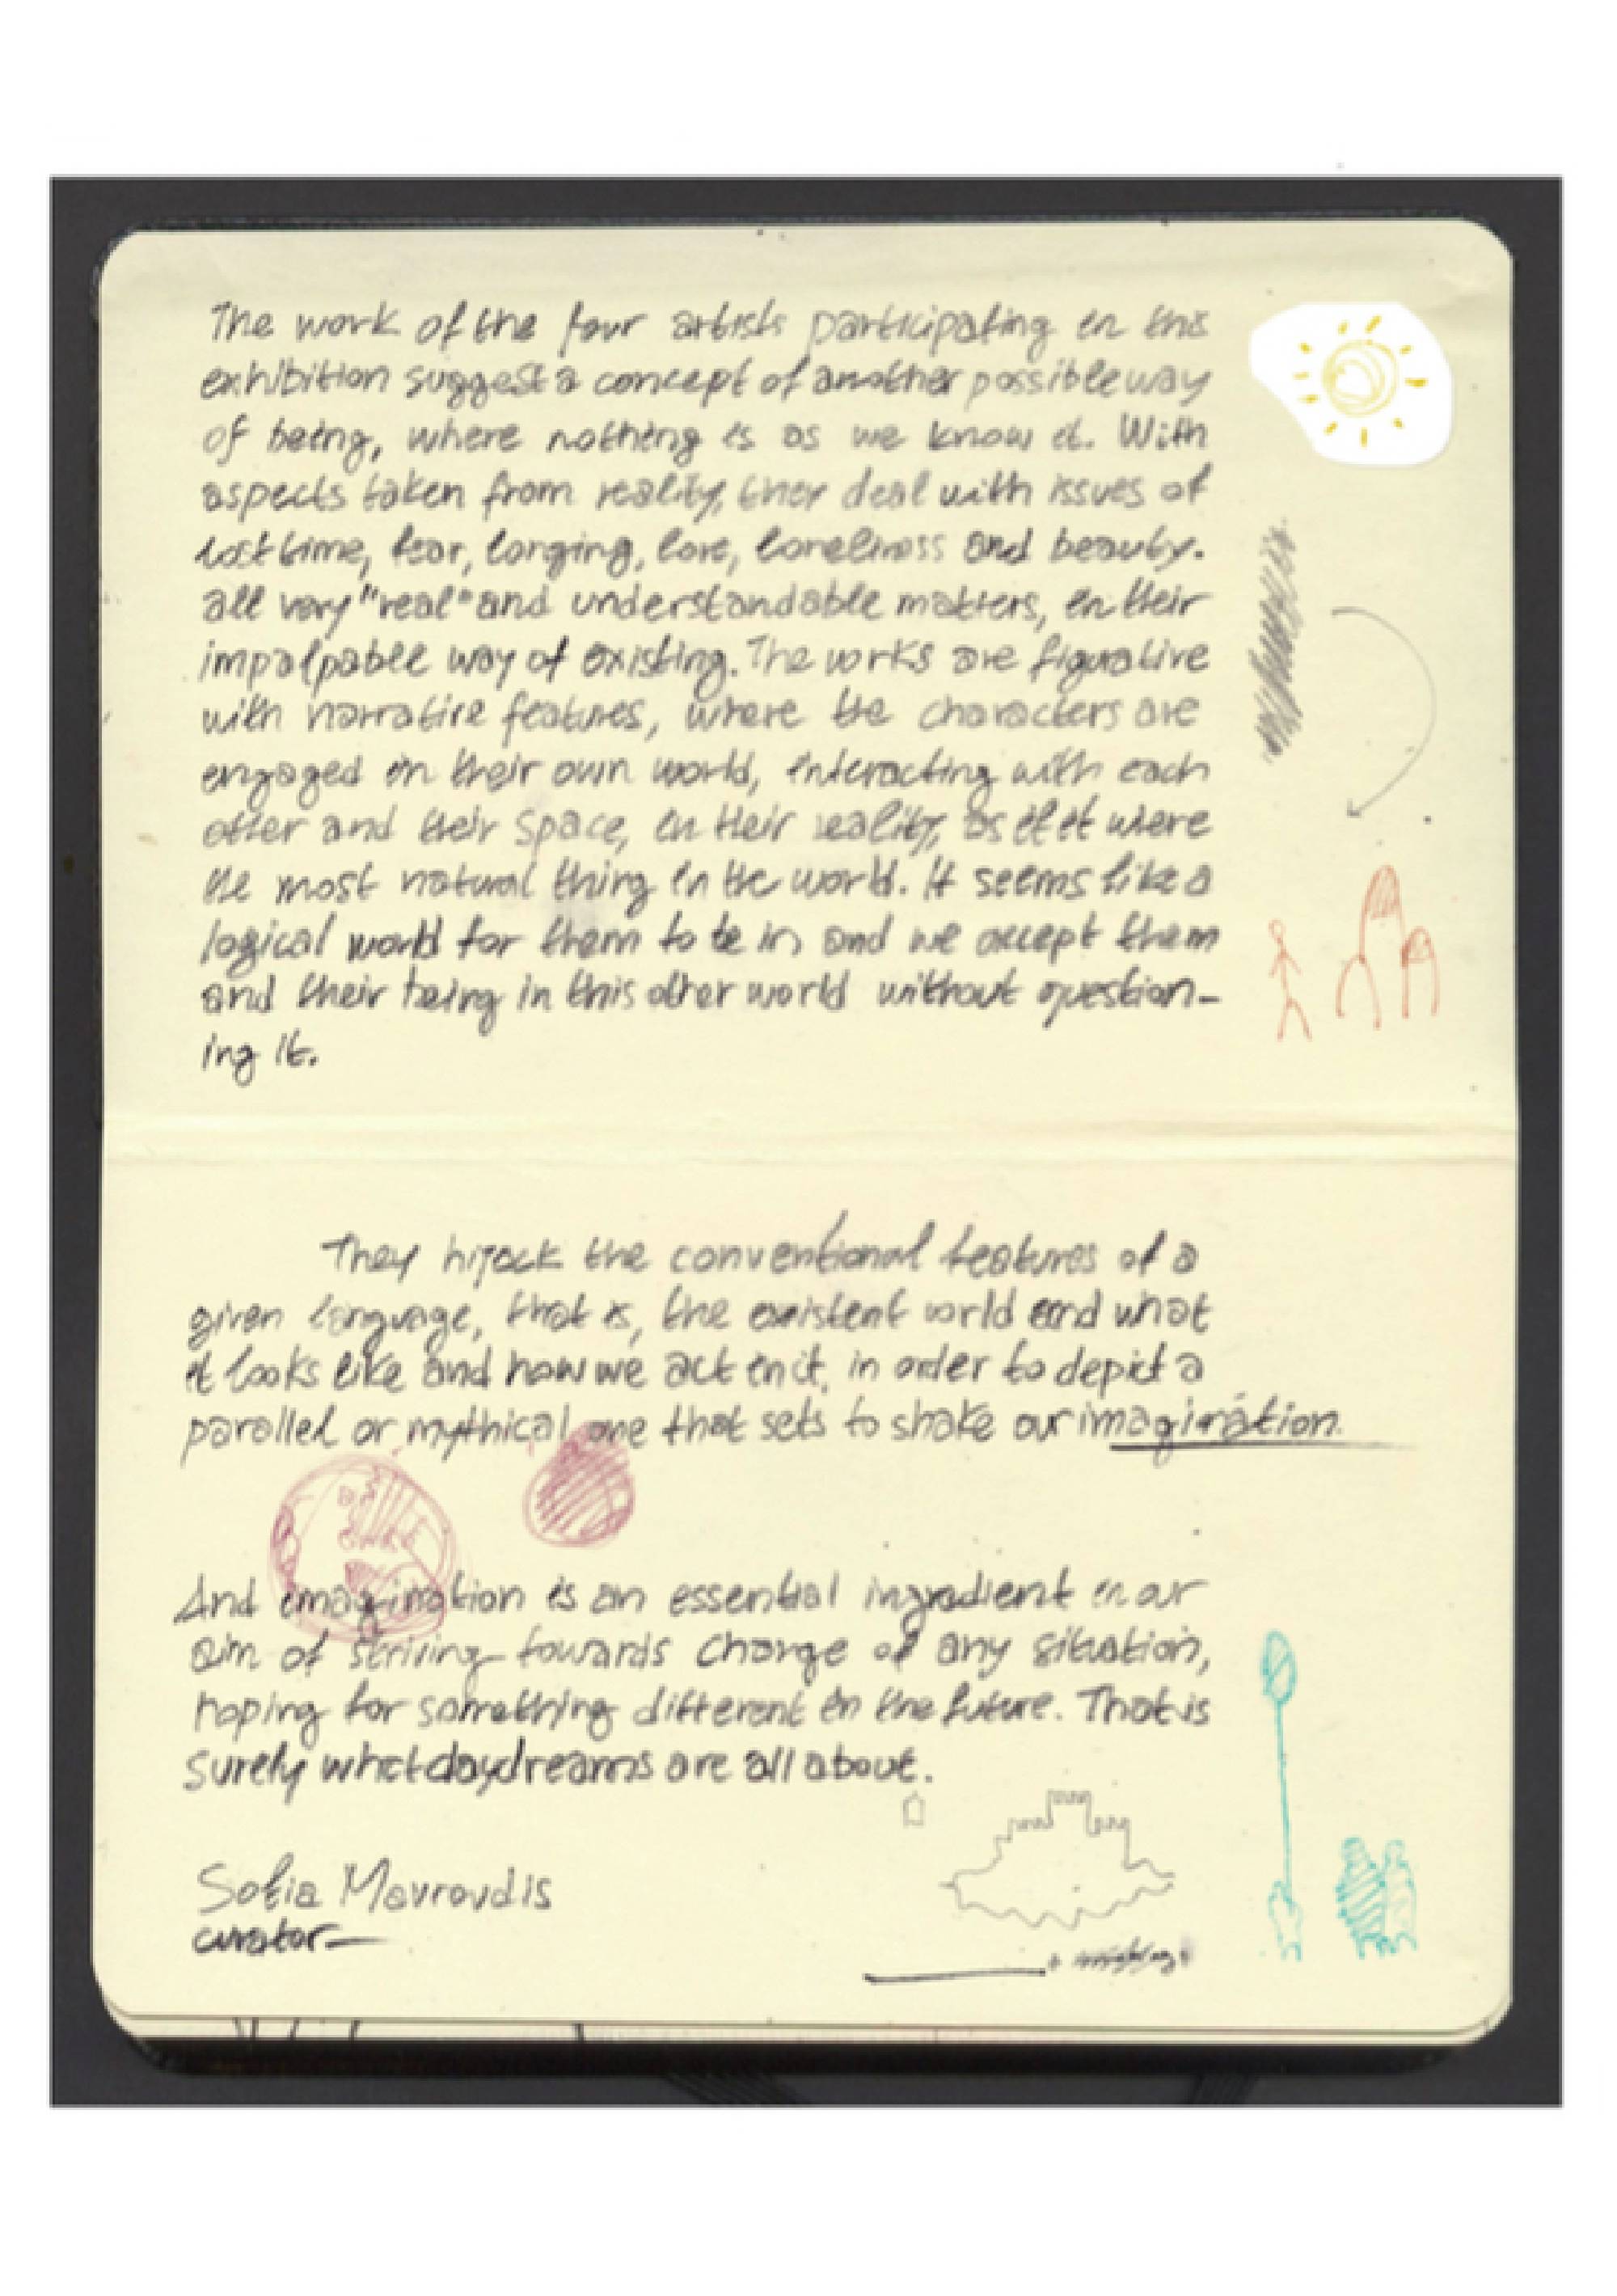 The work of the four artists participating in this
exhibition suggest a concept of another possible way
of being, where nothing is as we know it. With
aspects taken from reality, they deal with issues of
lost time, fear, longing, love, loneliness and beauty.
all very "real" and understandable matters, in their
impalpable way of existing. The works are figurative
with narrative features, where the characters are
engaged in their own world, interacting with each
other and their space, in their reality, as if it were
the most natural thing in the world. It seems like a
logical world for them to be in and we accept them
and their being in this other world without question-
ing it.
They hijack the conventional features of a
given language, that is, the existent world and what
it looks like and how we act in it, in order to depict a
parallel or mythical one that sets to shake our imagination.
And imagination is an essential ingredient in our
aim of striving towards change of any situation,
hoping for something different in the future. That is
surely what daydreams are all about.
Sofia Mavroudis
curator